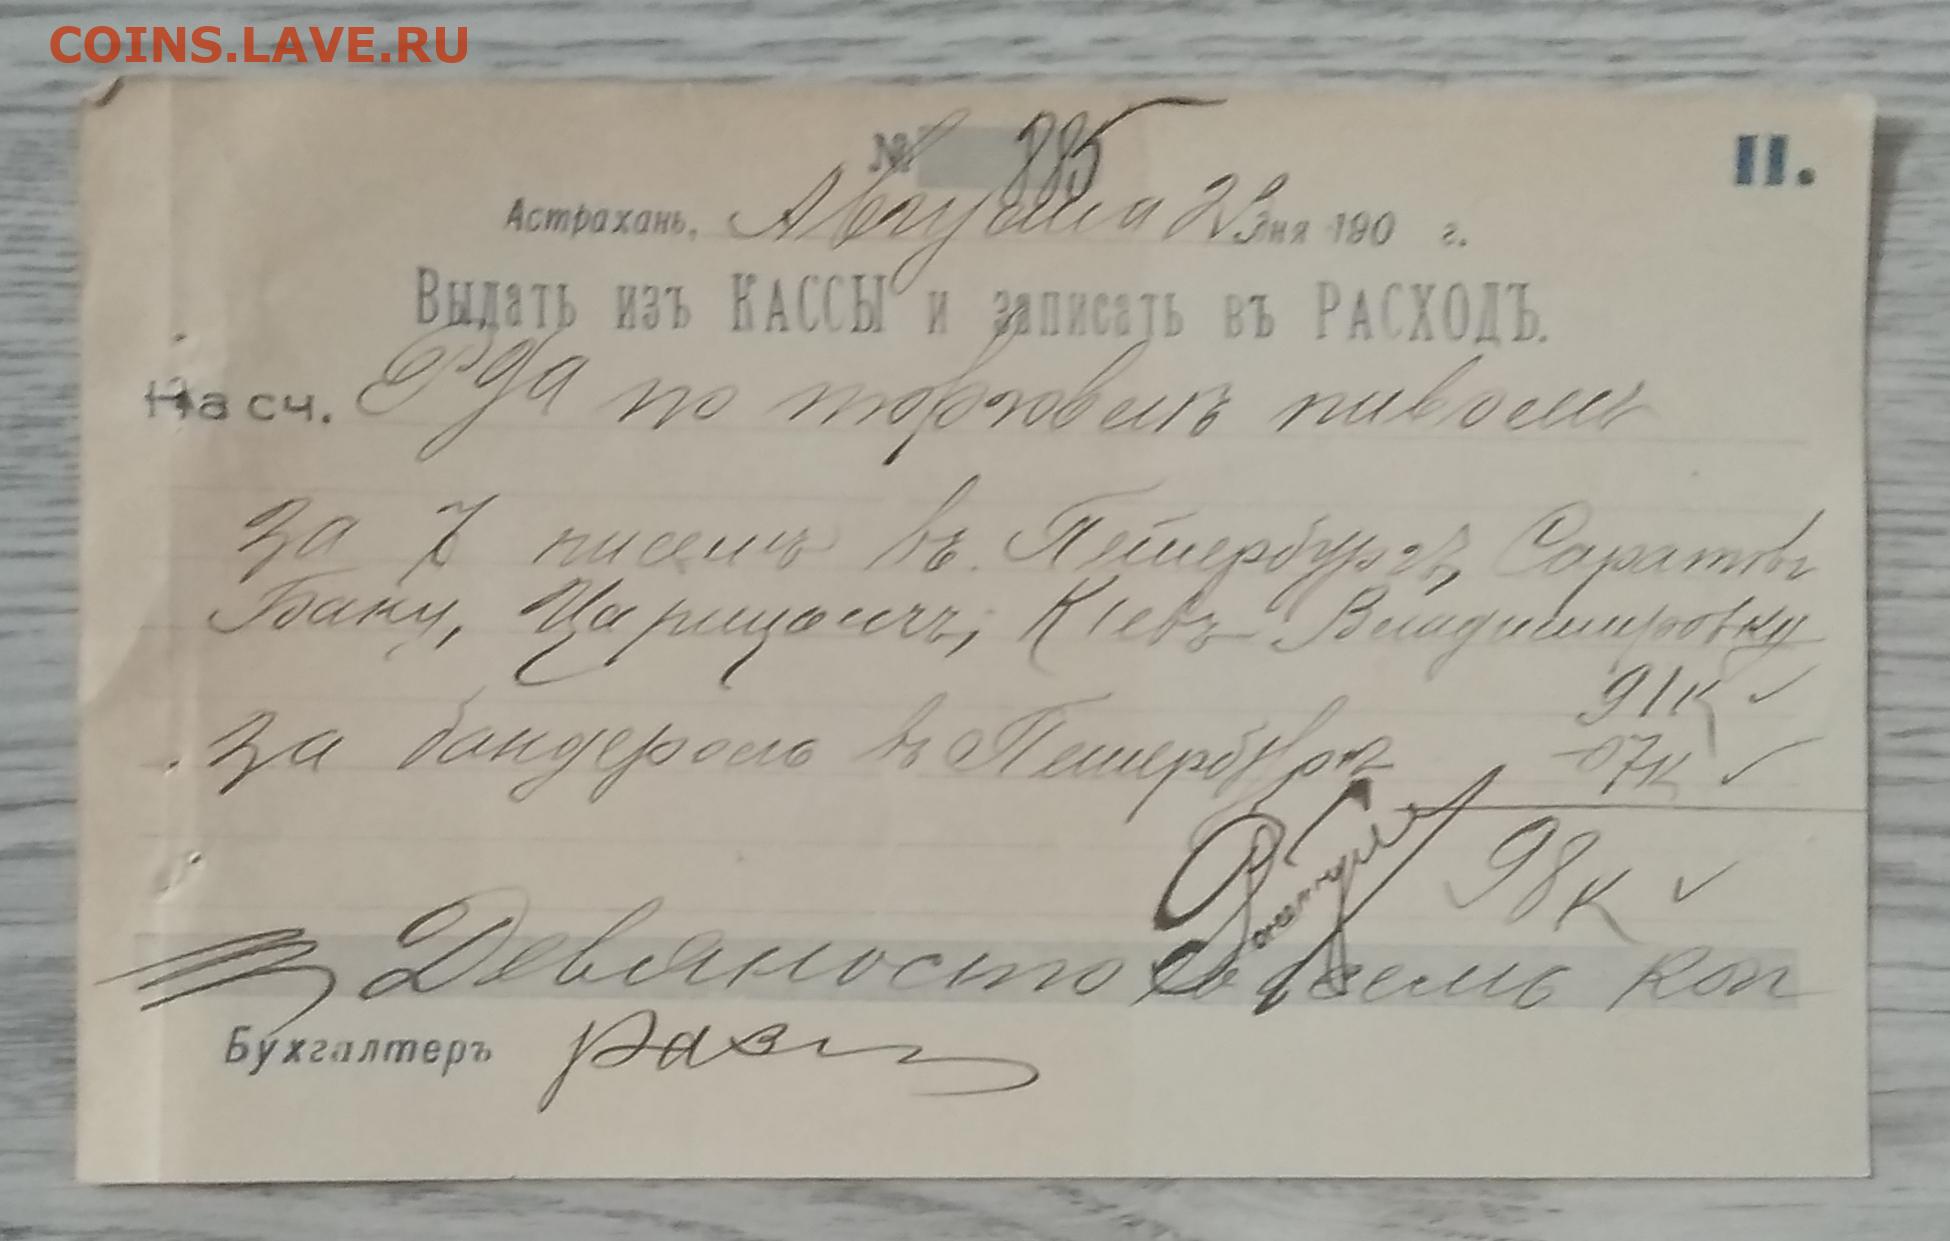 COINS.LAVE.RU
№ 885
II.
Астрахань, Августа дня 190 г.
Выдать изъ КАССЫ и записать въ РАСХОДЪ.
На сч. Р-да по торговлѣ пивомъ
за 7 писемъ въ Петербургъ, Саратовъ
Баку, Царицынъ, Кіевъ Владимировку
91к
за бандероль въ Петербургъ 07к
98к
Девяносто восемь коп
Бухгалтеръ